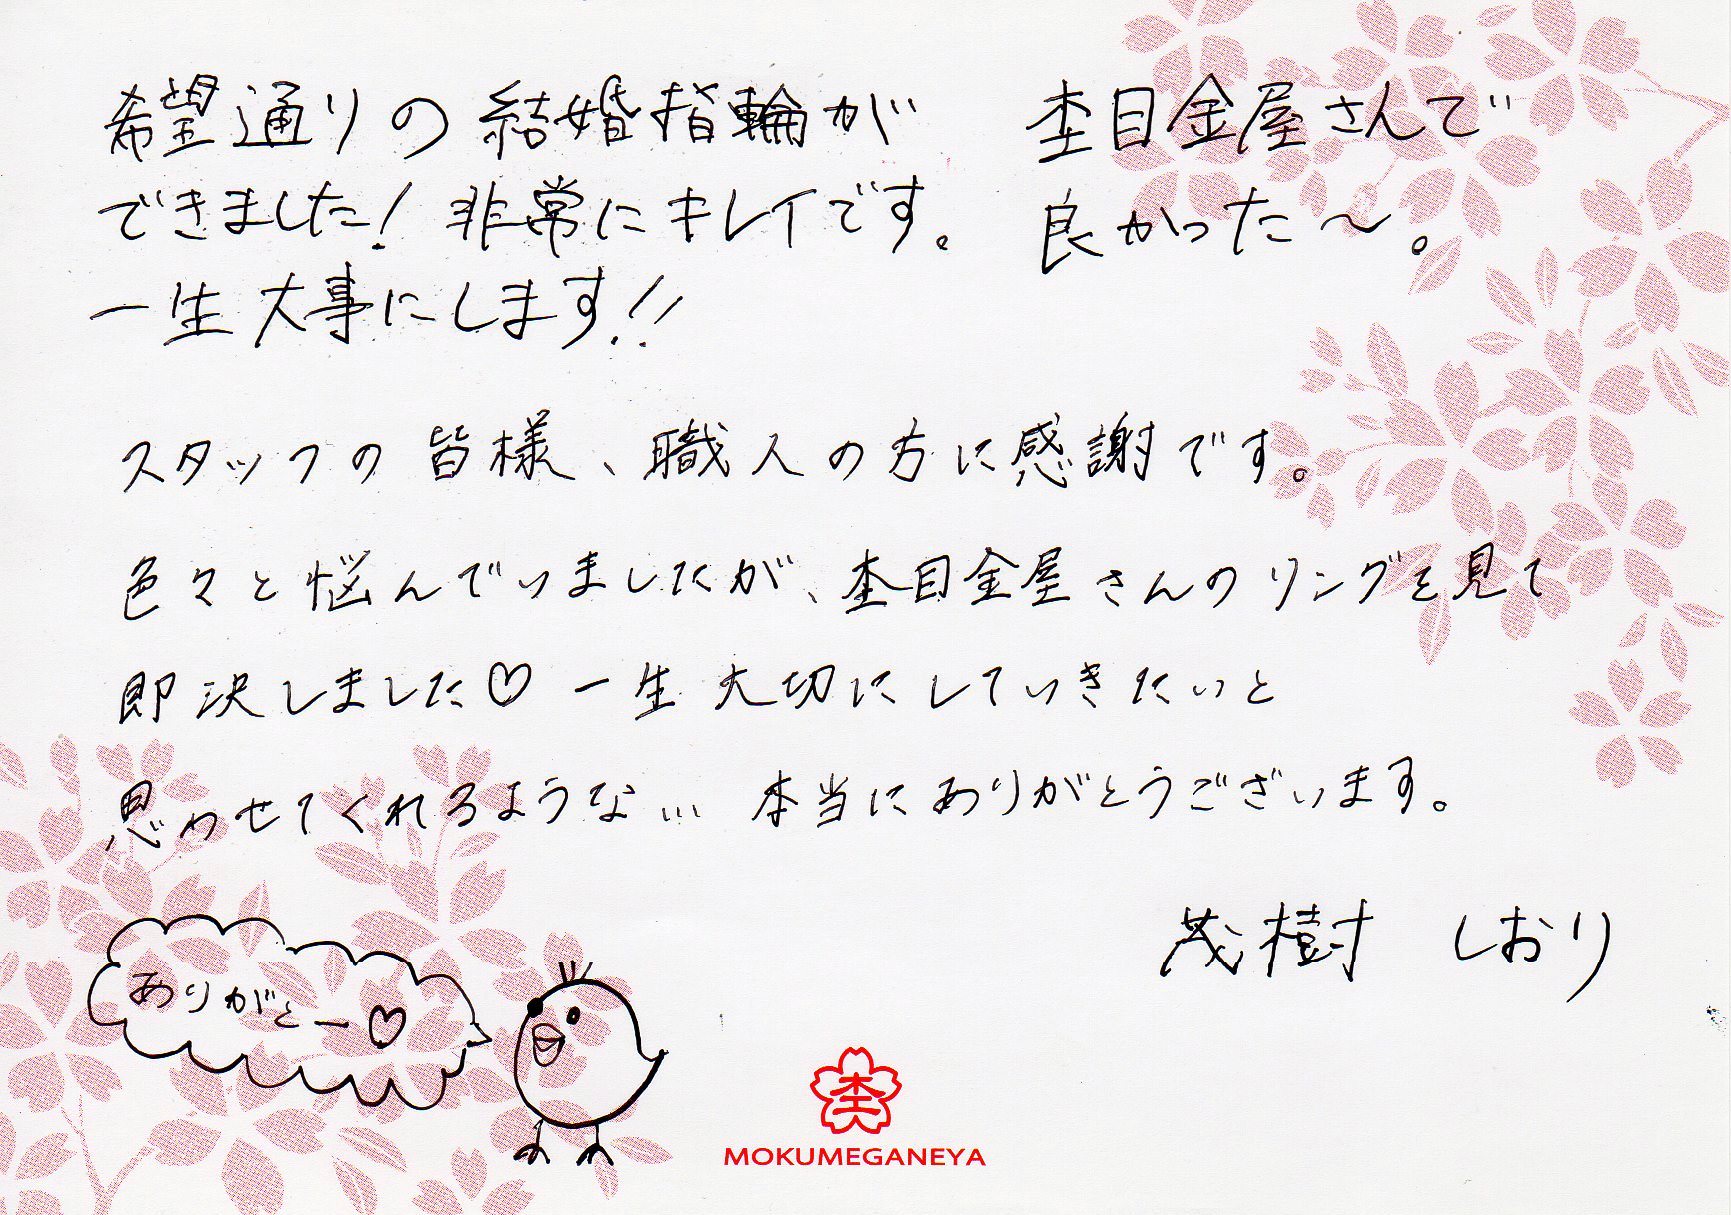 希望通りの結婚指輪が
できました！非常にキレイです。
一生大事にします!!
杢目金屋さんで
良かった〜。
スタッフの皆様、職人の方に感謝です。
色々と悩んでいましたが、杢目金屋さんのリングを見て
即決しました♡一生大切にしていきたいと
思わせてくれるような… 本当にありがとうございます。
茂樹 しおり
ありがとー♡
杢
MOKUMEGANEYA